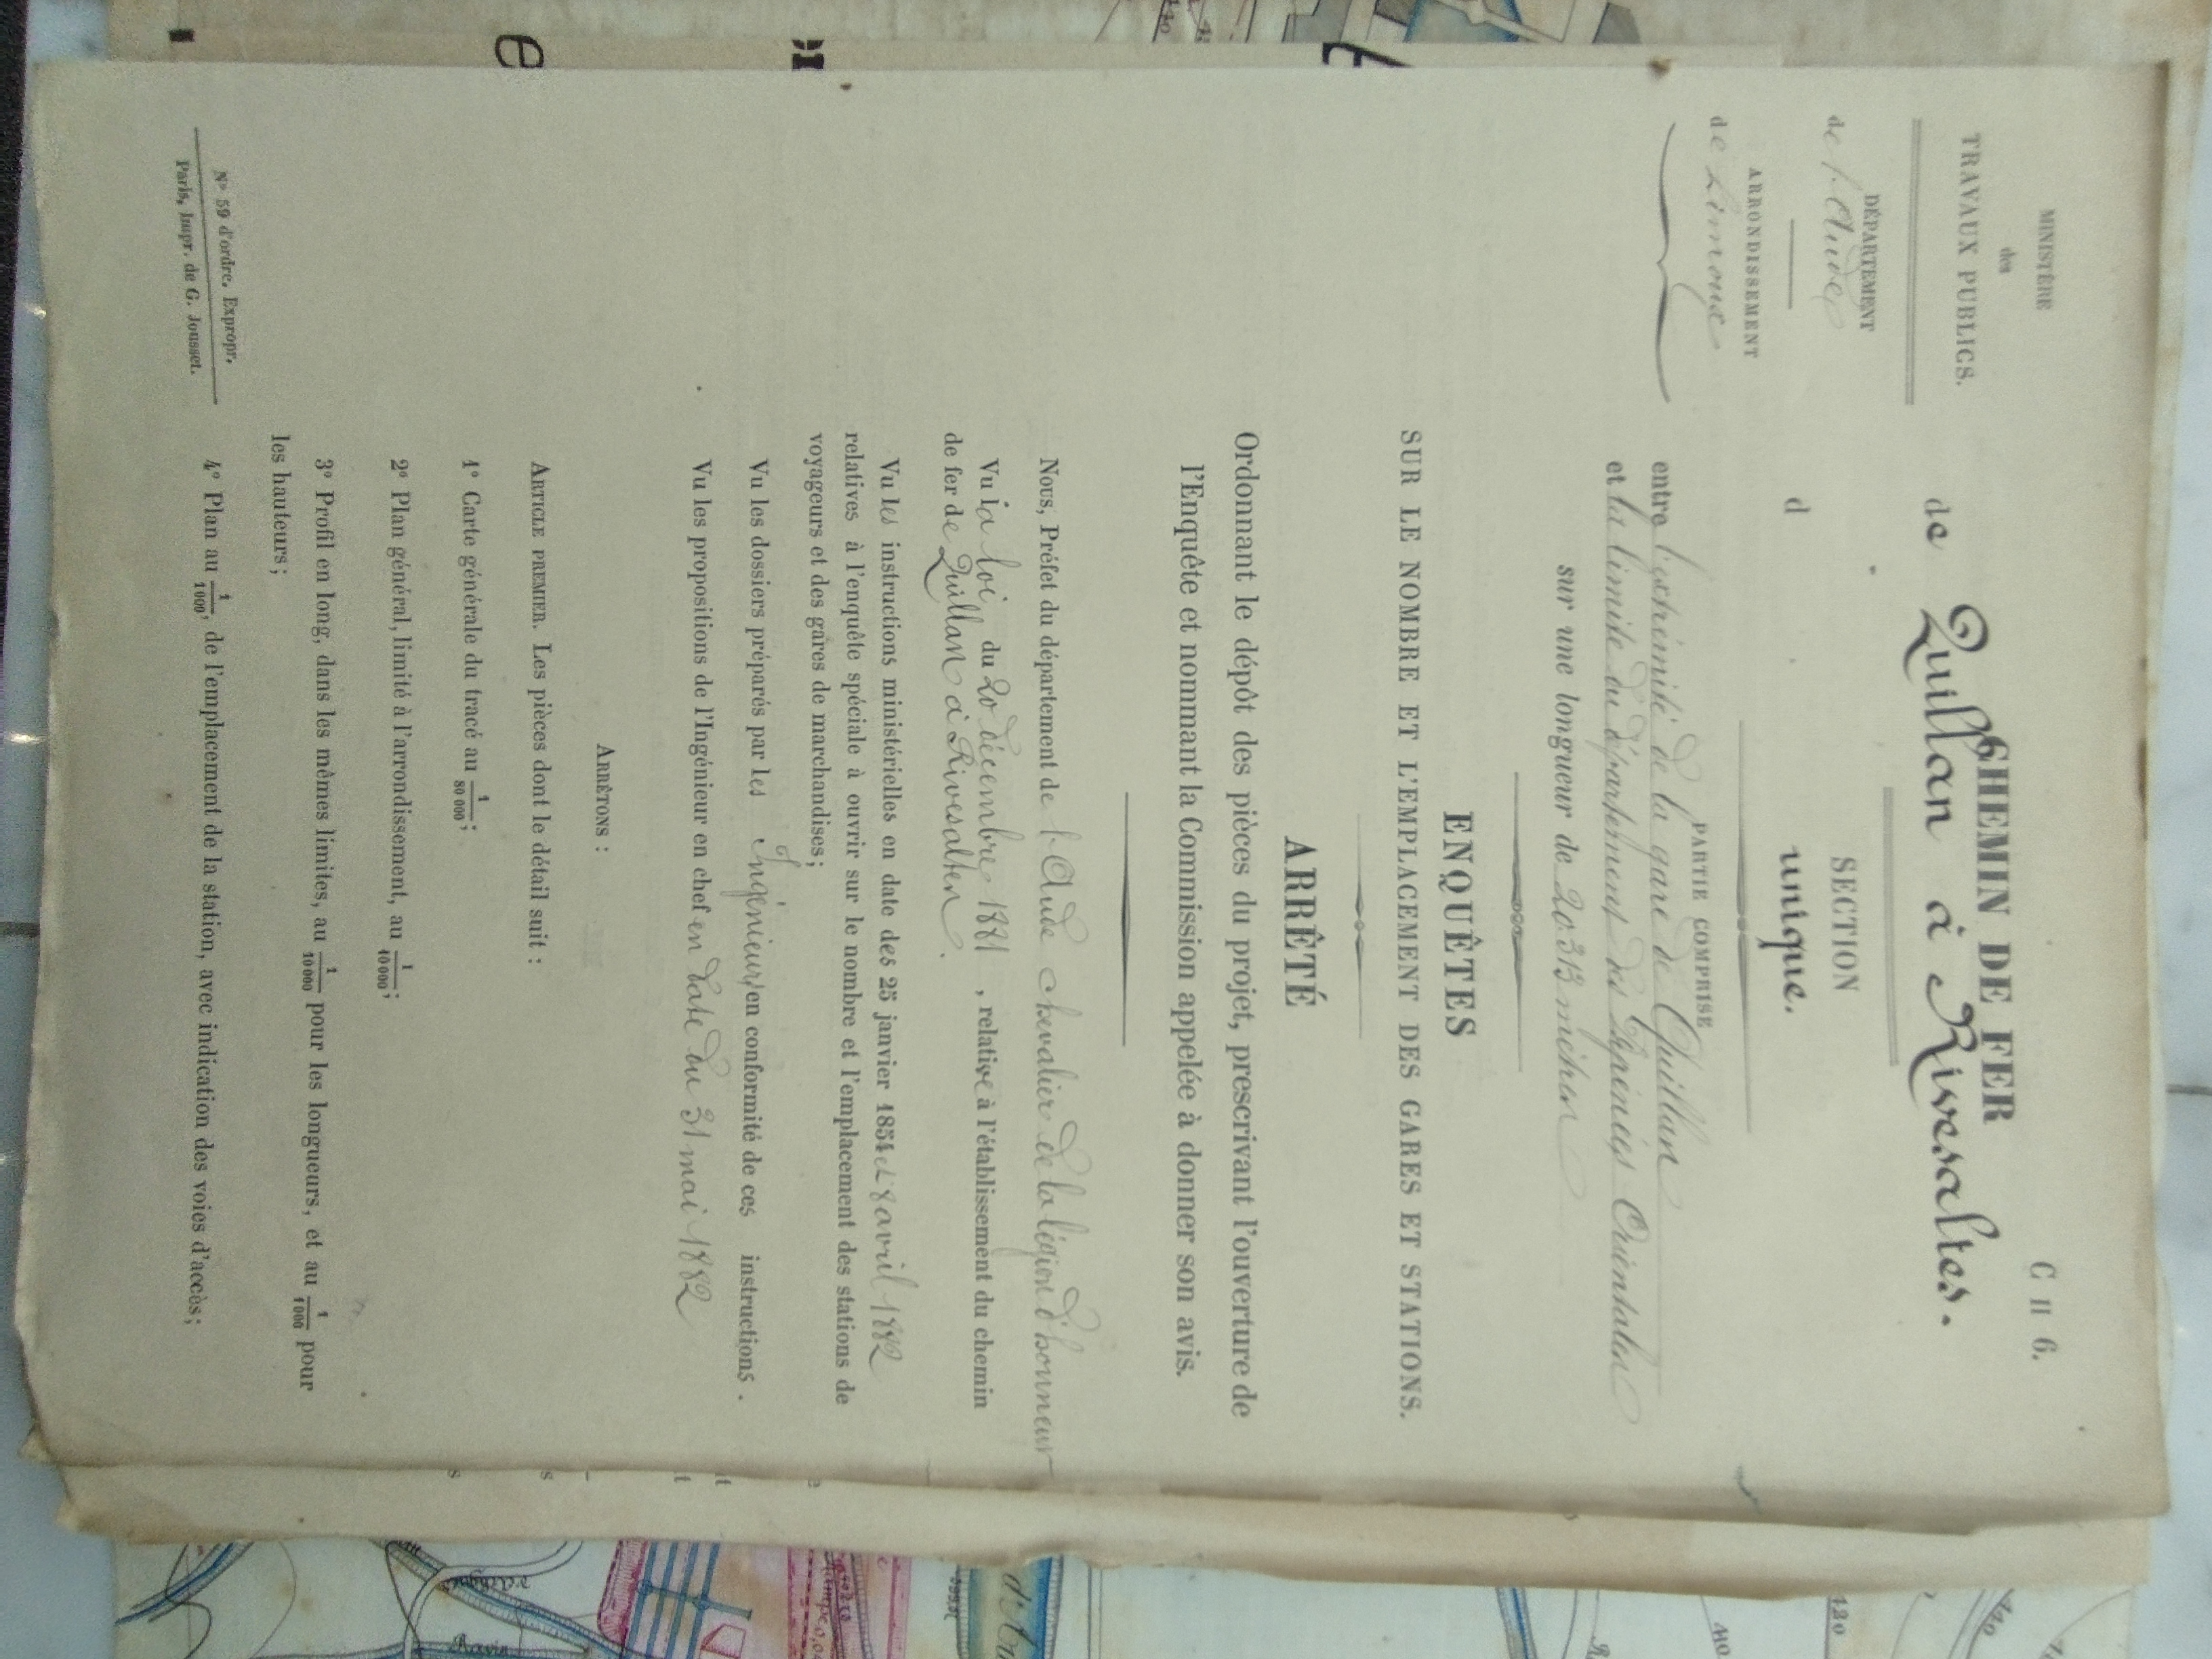 MINISTÈRE
des
TRAVAUX PUBLICS.
DÉPARTEMENT
de l'Aude
ARRONDISSEMENT
de Limoux
C II 6.
CHEMIN DE FER
de Quillan à Rivesaltes.
SECTION
d unique.
PARTIE COMPRISE
entre l'extrémité de la gare de Quillan
et la limite du département des Pyrénées Orientales
sur une longueur de 20.313 mètres
ENQUÊTES
SUR LE NOMBRE ET L'EMPLACEMENT DES GARES ET STATIONS.
ARRÊTÉ
Ordonnant le dépôt des pièces du projet, prescrivant l'ouverture de
l'Enquête et nommant la Commission appelée à donner son avis.
Nous, Préfet du département de l'Aude chevalier de la légion d'honneur
Vu la loi du 20 décembre 1881, relative à l'établissement du chemin
de fer de Quillan à Rivesaltes.
Vu les instructions ministérielles en date des 25 janvier 1854 et 8 avril 1882
relatives à l'enquête spéciale à ouvrir sur le nombre et l'emplacement des stations de
voyageurs et des gares de marchandises;
Vu les dossiers préparés par les Ingénieurs en conformité de ces instructions.
Vu les propositions de l'Ingénieur en chef en date du 31 mai 1882
ARRÊTONS :
ARTICLE PREMIER. Les pièces dont le détail suit :
1° Carte générale du tracé au 1/80 000;
2° Plan général, limité à l'arrondissement, au 1/10 000;
3° Profil en long, dans les mêmes limites, au 1/10 000 pour les longueurs, et au 1/1 000 pour
les hauteurs;
4° Plan au 1/1 000, de l'emplacement de la station, avec indication des voies d'accès;
N° 59 d'ordre. Expropr.
Paris, Impr. de G. Jousset.
120
110
140